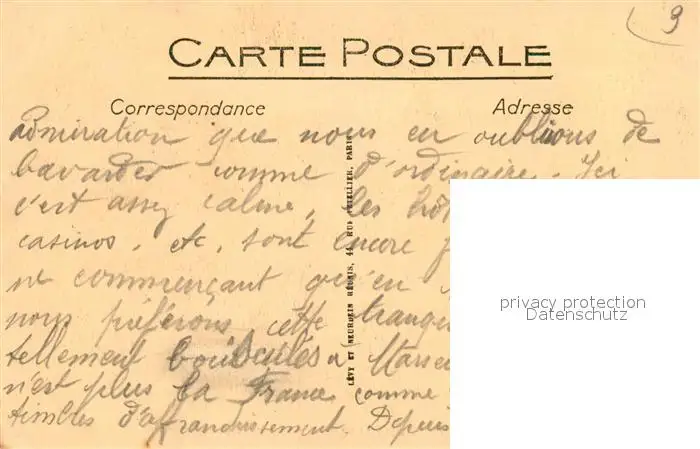 9
CARTE POSTALE
Correspondance
Adresse
admiration que nous en oublions de
bavarder comme d'ordinaire. Ici
c'est assez calme, les hôt
casinos, etc, sont encore f
ne commençant qu'en
nous préférons cette tranqui
tellement bousculés à Marse
n'est plus la France comme
timbres d'affranchissement. Depuis
LÉVY ET NEURDEIN RÉUNIS, 44, RUE LETELLIER, PARIS
privacy protection
Datenschutz